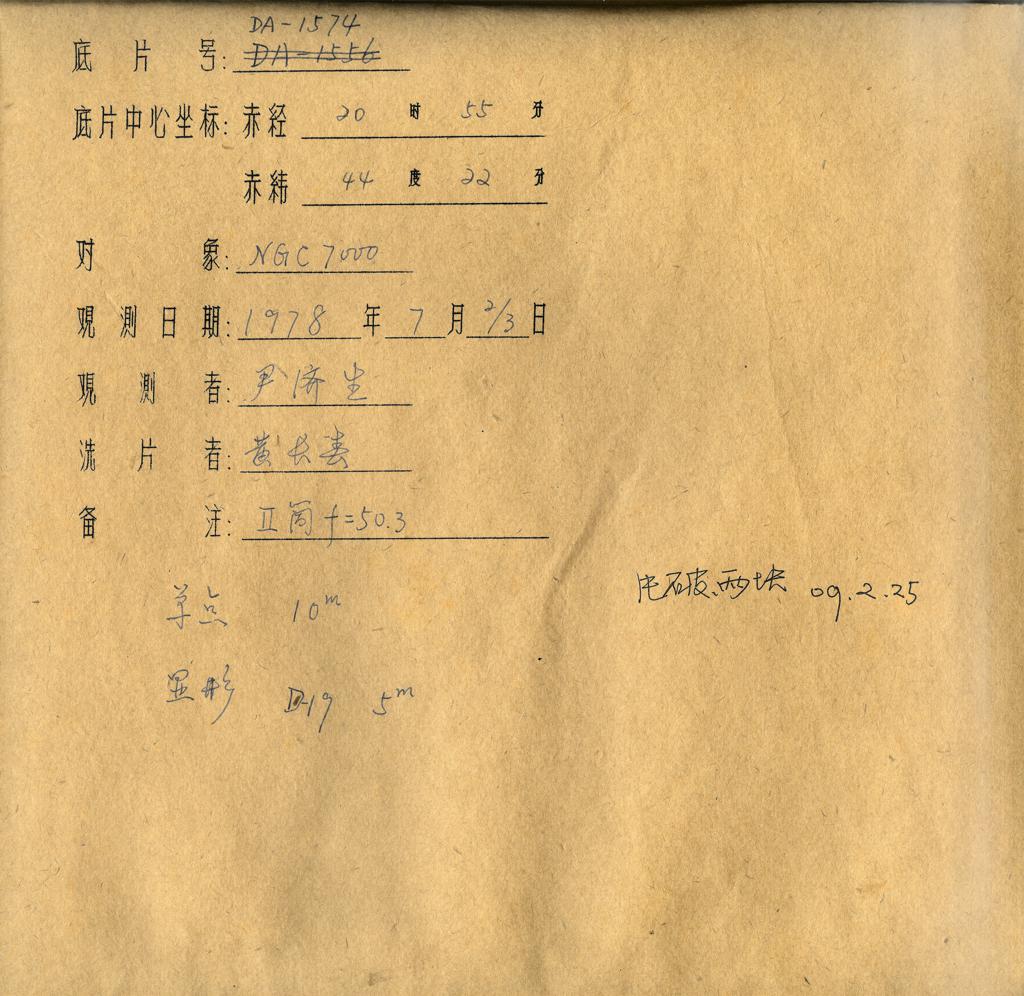 DA-1574
底片号: DA-1556
底片中心坐标: 赤经 20 时 55 分
赤纬 44 度 22 分
对象: NGC 7000
观测日期: 1978 年 7 月 2/3 日
观测者: 尹济生
洗片者: 黄长春
备注: II筒 f=50.3
单点 10ᵐ
已破两块 09.2.25
显影 D-19 5ᵐ